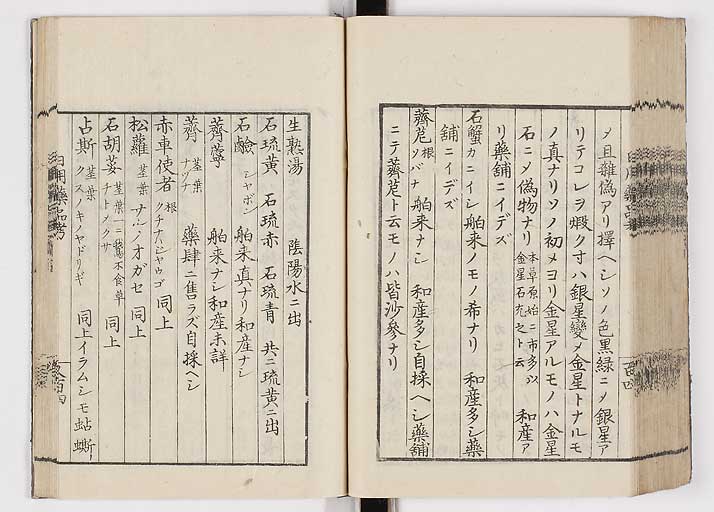 メ且雜偽アリ擇ヘシソノ色黒緑ニメ銀星ア
リテコレヲ煅ク寸ハ銀星變メ金星トナルモ
ノ真ナリソノ初メヨリ金星アルモノハ金星
石ニメ偽物ナリ 本草原始ニ市多以金星石充之ト云 和産ア
リ藥舗ニイデズ
石蟹 カニイシ 舶来ノモノ希ナリ 和産多シ藥
舗ニイデズ
薺苨 根 ソバナ 舶来ナシ 和産多シ自採ヘシ藥舗
ニテ薺苨ト云モノハ皆沙參ナリ
生熟湯 陰陽水ニ出
石琉黄 石琉赤 石琉青 共ニ琉黄ニ出
石鹼 シヤボン 舶来真ナリ和産ナシ
薺薴 舶来ナシ和産未詳
薺 茎葉 ナツナ 藥肆ニ售ラズ自採ヘシ
赤車使者 根 クチナハジヤウゴ 同上
松蘿 茎葉 サルノオガセ 同上
石胡荽 茎葉 一ニ鵞不食草 チトメクサ 同上
占斯 茎葉 クスノキノヤドリギ 同上イラムシモ蛅蟖
日用藥品考
百四